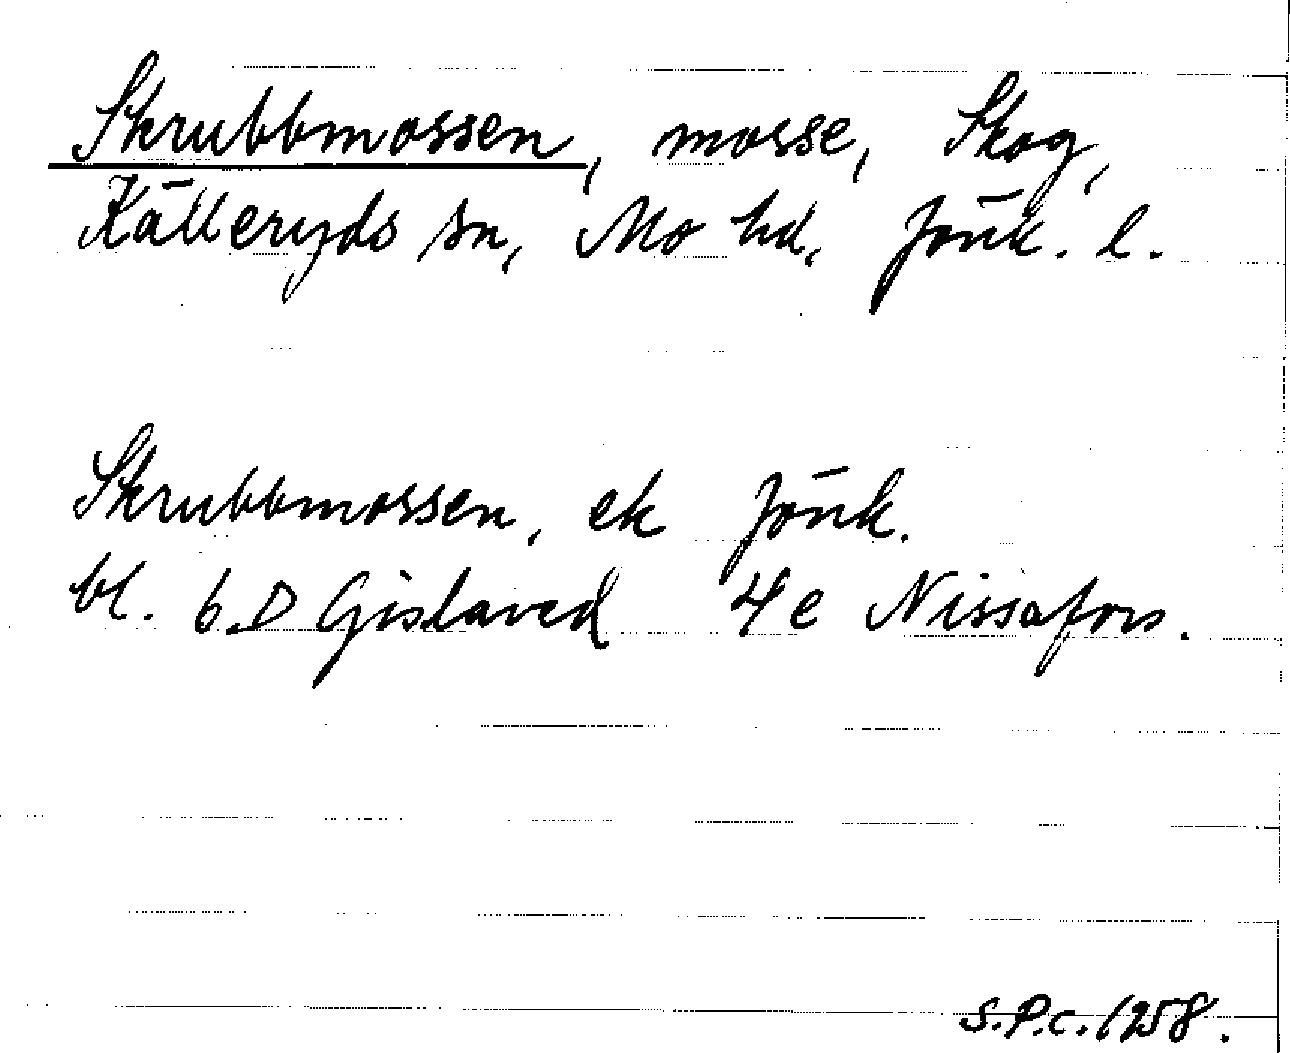 Skrubbmossen, mosse, Skog,
Källeryds sn, Mo hd, Jönk. l.
Skrubbmossen, ek Jönk.
bl. 6 D Gislaved 4 e Nissafors.
S.P.C. 1258.